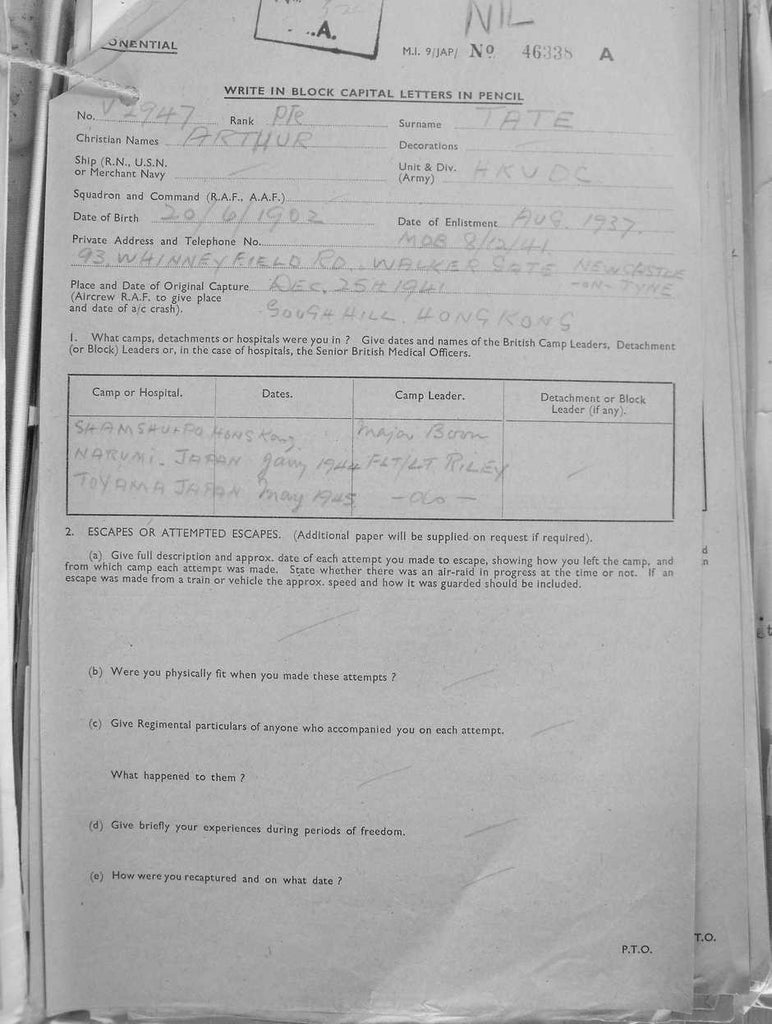 NIL
A.
ONENTIAL
M.I. 9/JAP/ No 46338 A
WRITE IN BLOCK CAPITAL LETTERS IN PENCIL
No. V2947 Rank Pte Surname TATE
Christian Names ARTHUR Decorations
Ship (R.N., U.S.N. or Merchant Navy Unit & Div. (Army) HKVDC
Squadron and Command (R.A.F., A.A.F.)
Date of Birth 20/6/1902 Date of Enlistment AUG. 1937.
Private Address and Telephone No. MOB 8/12/41
93, WHINNEYFIELD RD. WALKER GATE NEWCASTLE
-ON-TYNE
Place and Date of Original Capture DEC. 25th 1941
(Aircrew R.A.F. to give place
and date of a/c crash). GOUGH HILL. HONG KONG
1. What camps, detachments or hospitals were you in ? Give dates and names of the British Camp Leaders, Detachment
(or Block) Leaders or, in the case of hospitals, the Senior British Medical Officers.
Camp or Hospital. Dates. Camp Leader. Detachment or Block Leader (if any).
SHAMSHUIPO HONG Kong Major Boon
NARUMI. JAPAN Jany 1944 FLT/LT RILEY
TOYAMA JAPAN May 1945 -do-
2. ESCAPES OR ATTEMPTED ESCAPES. (Additional paper will be supplied on request if required).
(a) Give full description and approx. date of each attempt you made to escape, showing how you left the camp, and
from which camp each attempt was made. State whether there was an air-raid in progress at the time or not. If an
escape was made from a train or vehicle the approx. speed and how it was guarded should be included.
(b) Were you physically fit when you made these attempts ?
(c) Give Regimental particulars of anyone who accompanied you on each attempt.
What happened to them ?
(d) Give briefly your experiences during periods of freedom.
(e) How were you recaptured and on what date ?
P.T.O.
T.O.